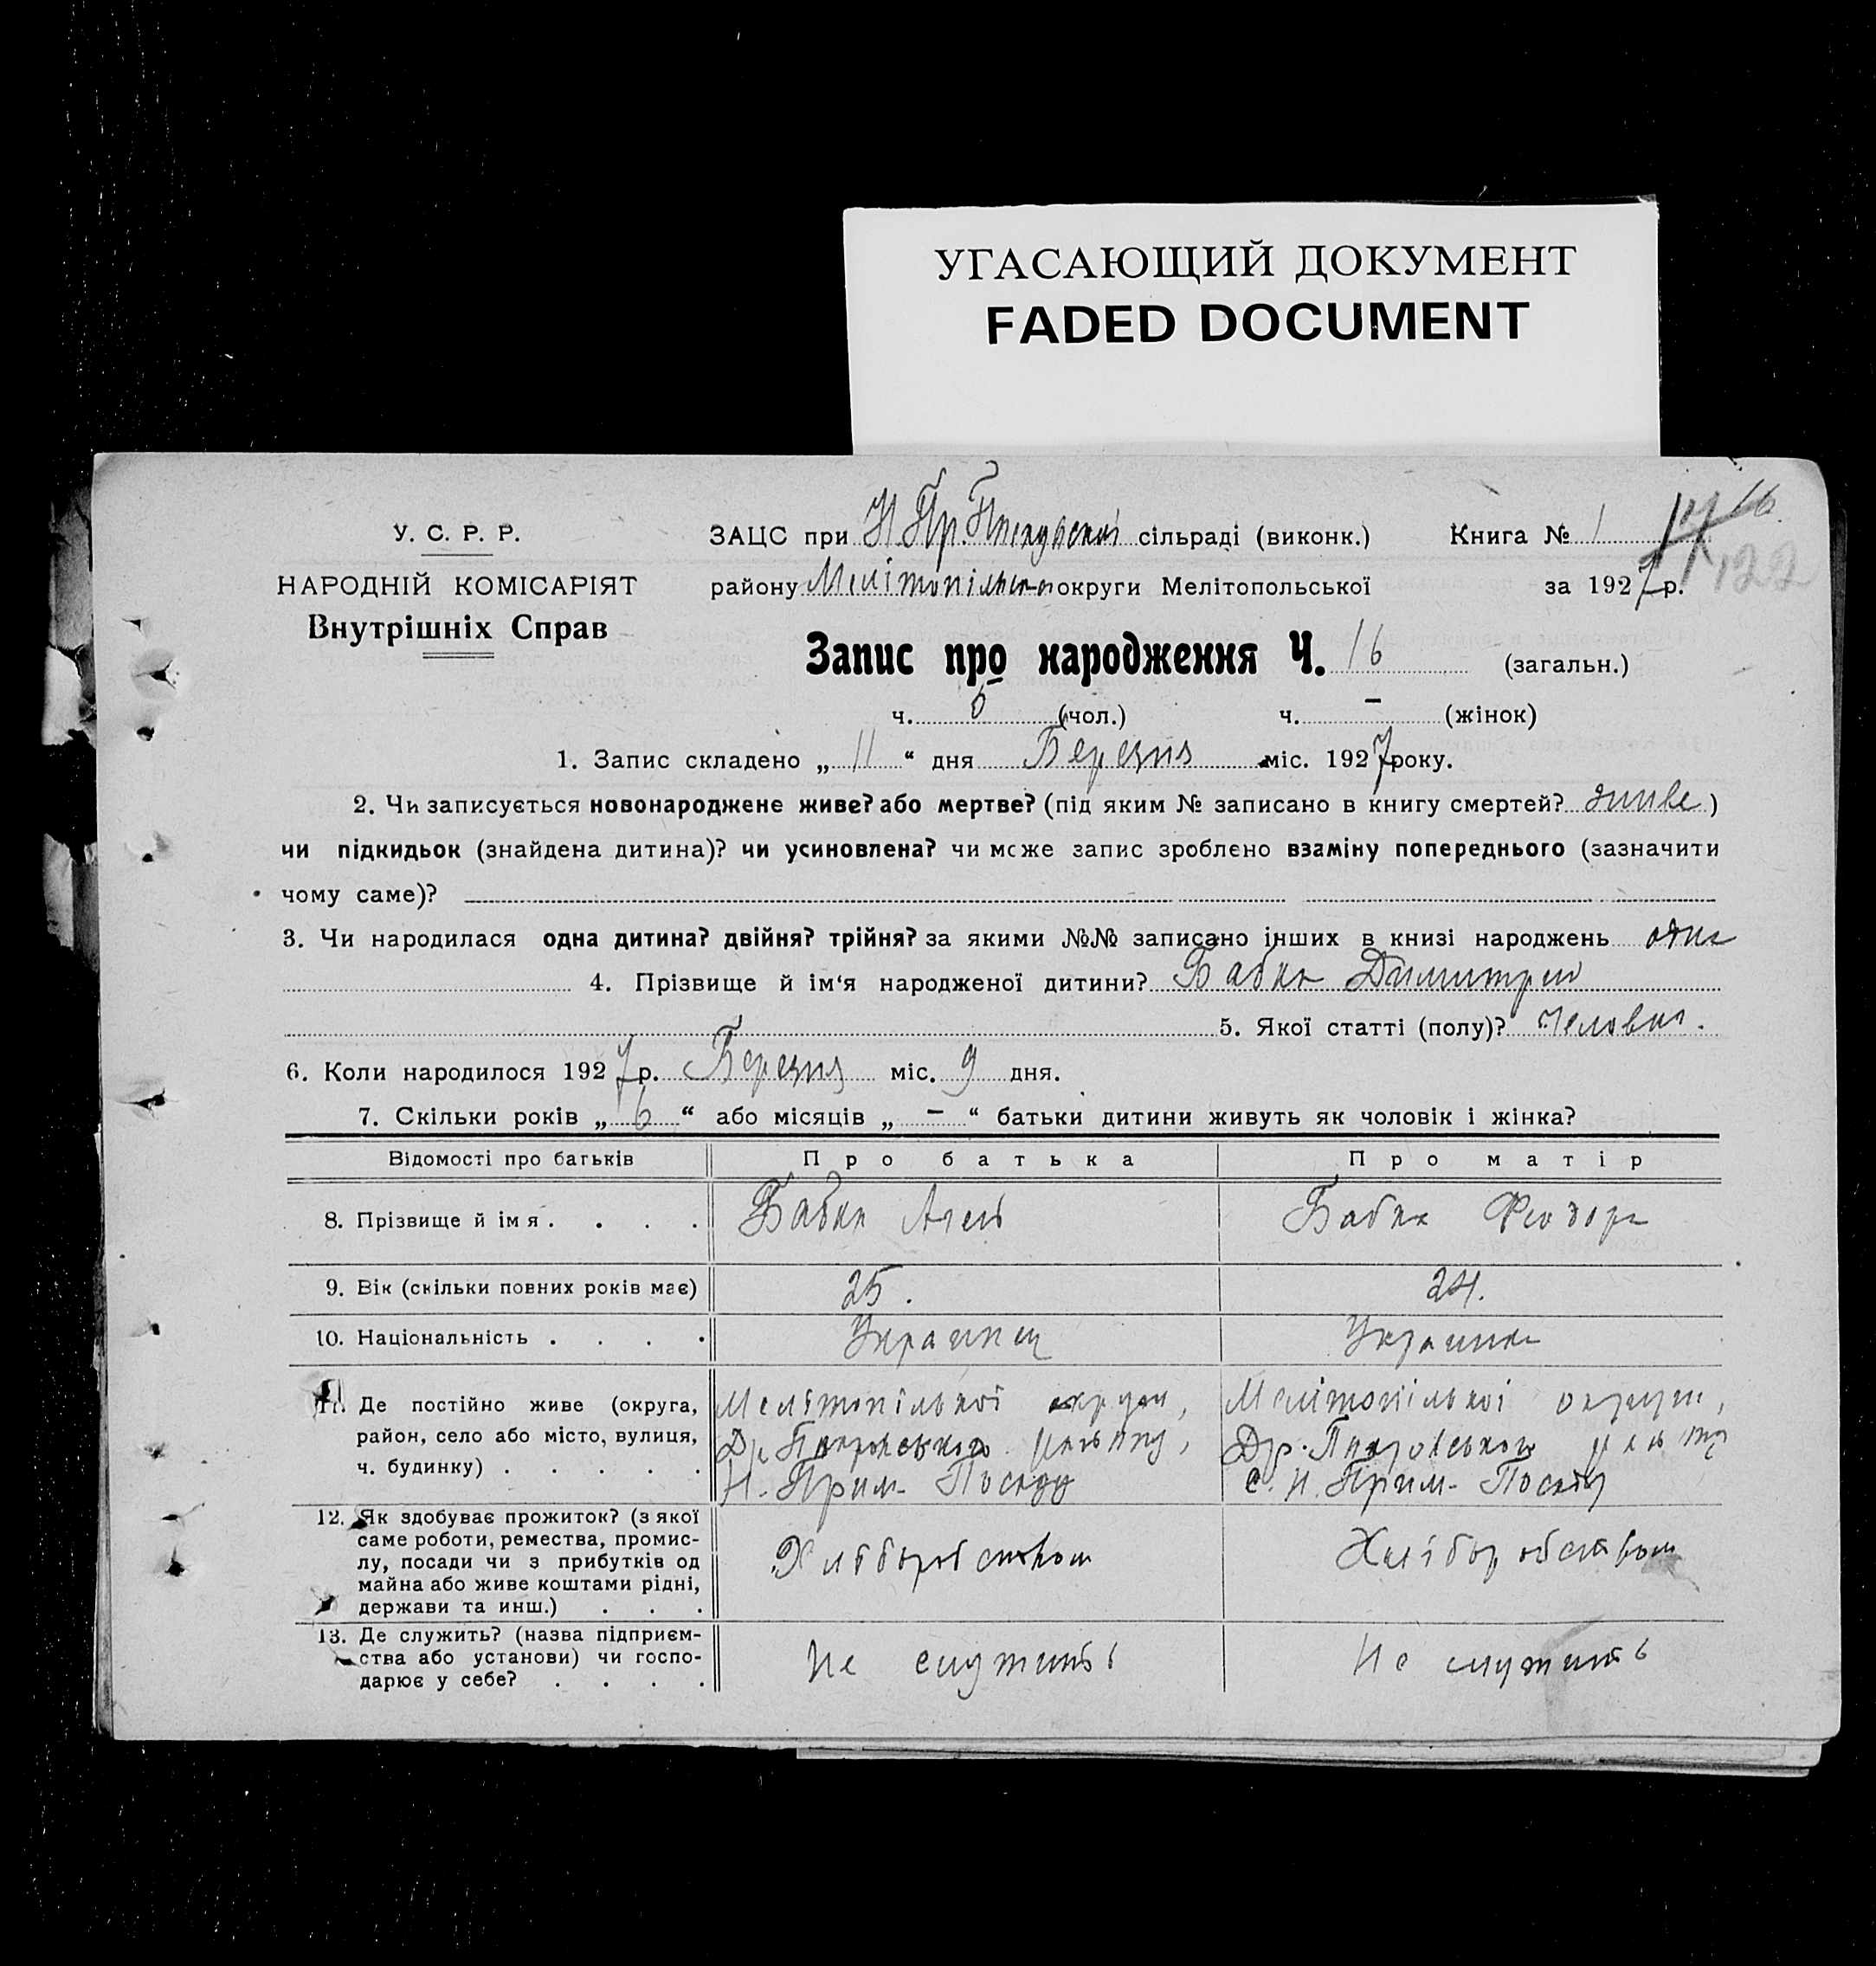 УГАСАЮЩИЙ ДОКУМЕНТ
FADED DOCUMENT
16
У. С. Р. Р.
НАРОДНІЙ КОМІСАРІЯТ
Внутрішніх Справ
ЗАЦС при Н Пр. сільраді (виконк.) Книга № 1 17
району округи Мелітопольської за 1927 р. 122
Запис про народження Ч. 16 (загальн.)
ч. (чол.) ч. – (жінок)
1. Запис складено „ 11 “ дня Березня міс. 1927 року.
2. Чи записується новонароджене живе? або мертве? (під яким № записано в книгу смертей? живе )
чи підкидьок (знайдена дитина)? чи усиновлена? чи може запис зроблено взаміну попереднього (зазначити
чому саме)?
3. Чи народилася одна дитина? двійня? трійня? за якими №№ записано інших в книзі народжень одна
4. Прізвище й ім‘я народженої дитини? Бабак Димитрий
5. Якої статті (полу)? человіч.
6. Коли народилося 1927 р. Березня міс. 9 дня.
7. Скільки років „ 6 “ або місяців „ – “ батьки дитини живуть як чоловік і жінка?
Відомості про батьків Про батька Про матір
8. Прізвище й імя . . . . Бабак Бабак Феодора
9. Вік (скільки повних років має) 25. 24.
10. Національність . . . . Украинец Украинка
11. Де постійно живе (округа, Мелітопільскої округи, Мелітопільскої округи,
район, село або місто, вулиця, Др. Покровського Др. Покровського
ч. будинку) . . . . . Н. Прим. Посаду с. Н. Прим. Посаду
12. Як здобуває прожиток? (з якої
саме роботи, ремества, промис-
лу, посади чи з прибутків од Хліборобством Хліборобством
майна або живе коштами рідні,
держави та инш.) . . .
13. Де служить? (назва підприєм-
ства або установи) чи госпо- Не служить Не служить
дарює у себе? . . . .